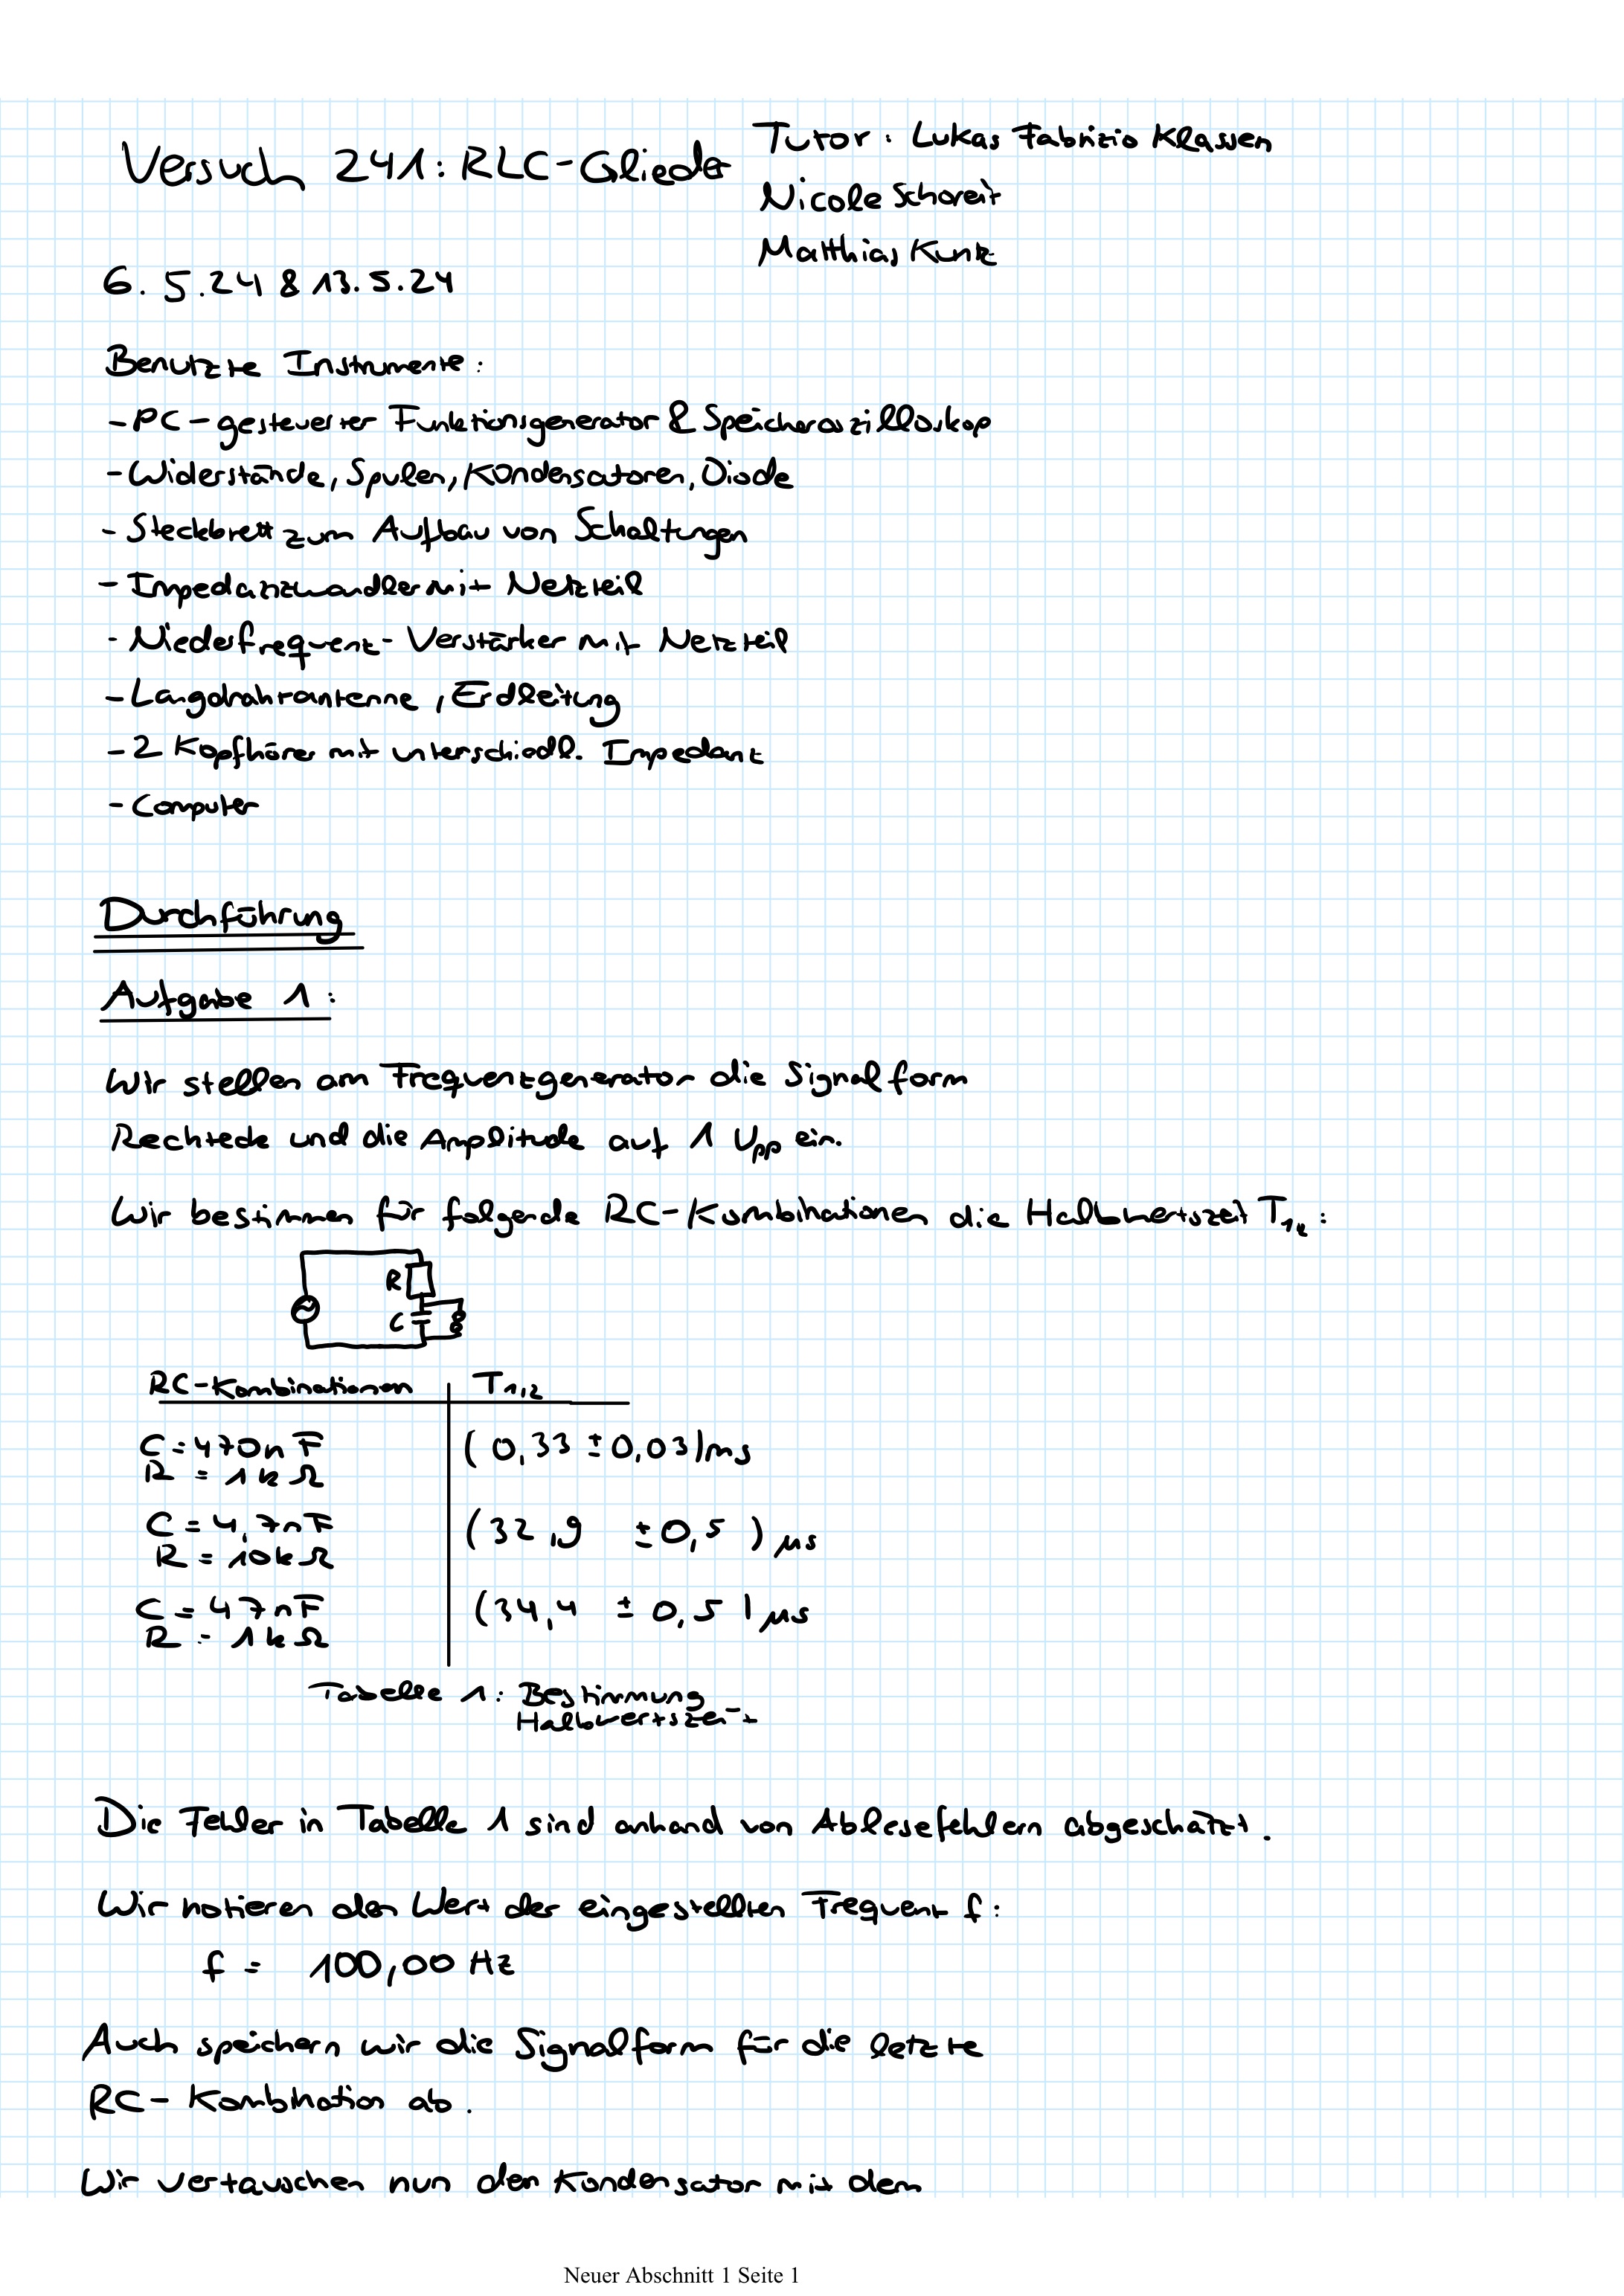 Versuch 241: RLC-Glieder
Tutor: Lukas Fabrizio Klassen
Nicole Schoreit
Matthias Kunk
6. 5.24 & 13.5.24
Benutzte Instrumente:
- PC - gesteuerter Funktionsgenerator & Speicheroszilloskop
- Widerstände, Spulen, Kondensatoren, Diode
- Steckbrett zum Aufbau von Schaltungen
- Impedanzwandler mit Netzteil
- Niederfrequenz- Verstärker mit Netzteil
- Langdrahtantenne, Erdleitung
- 2 Kopfhörer mit unterschiedl. Impedanz
- Computer
Durchführung
Aufgabe 1:
Wir stellen am Frequenzgenerator die Signalform
Rechtecke und die Amplitude auf 1 Upp ein.
Wir bestimmen für folgende RC-Kombinationen die Halbwertszeit T1/2:
R
C
RC-Kombinationen T1/2
C = 470nF (0,33 ± 0,03)ms
R = 1kΩ
C = 4,7nF (32,9 ± 0,5) μs
R = 10kΩ
C = 47nF (34,4 ± 0,5) μs
R = 1kΩ
Tabelle 1: Bestimmung
Halbwertszeit
Die Fehler in Tabelle 1 sind anhand von Ablesefehlern abgeschätzt.
Wir notieren den Wert der eingestellten Frequenz f:
f = 100,00 Hz
Auch speichern wir die Signalform für die letzte
RC- Kombination ab.
Wir vertauschen nun den Kondensator mit dem
Neuer Abschnitt 1 Seite 1